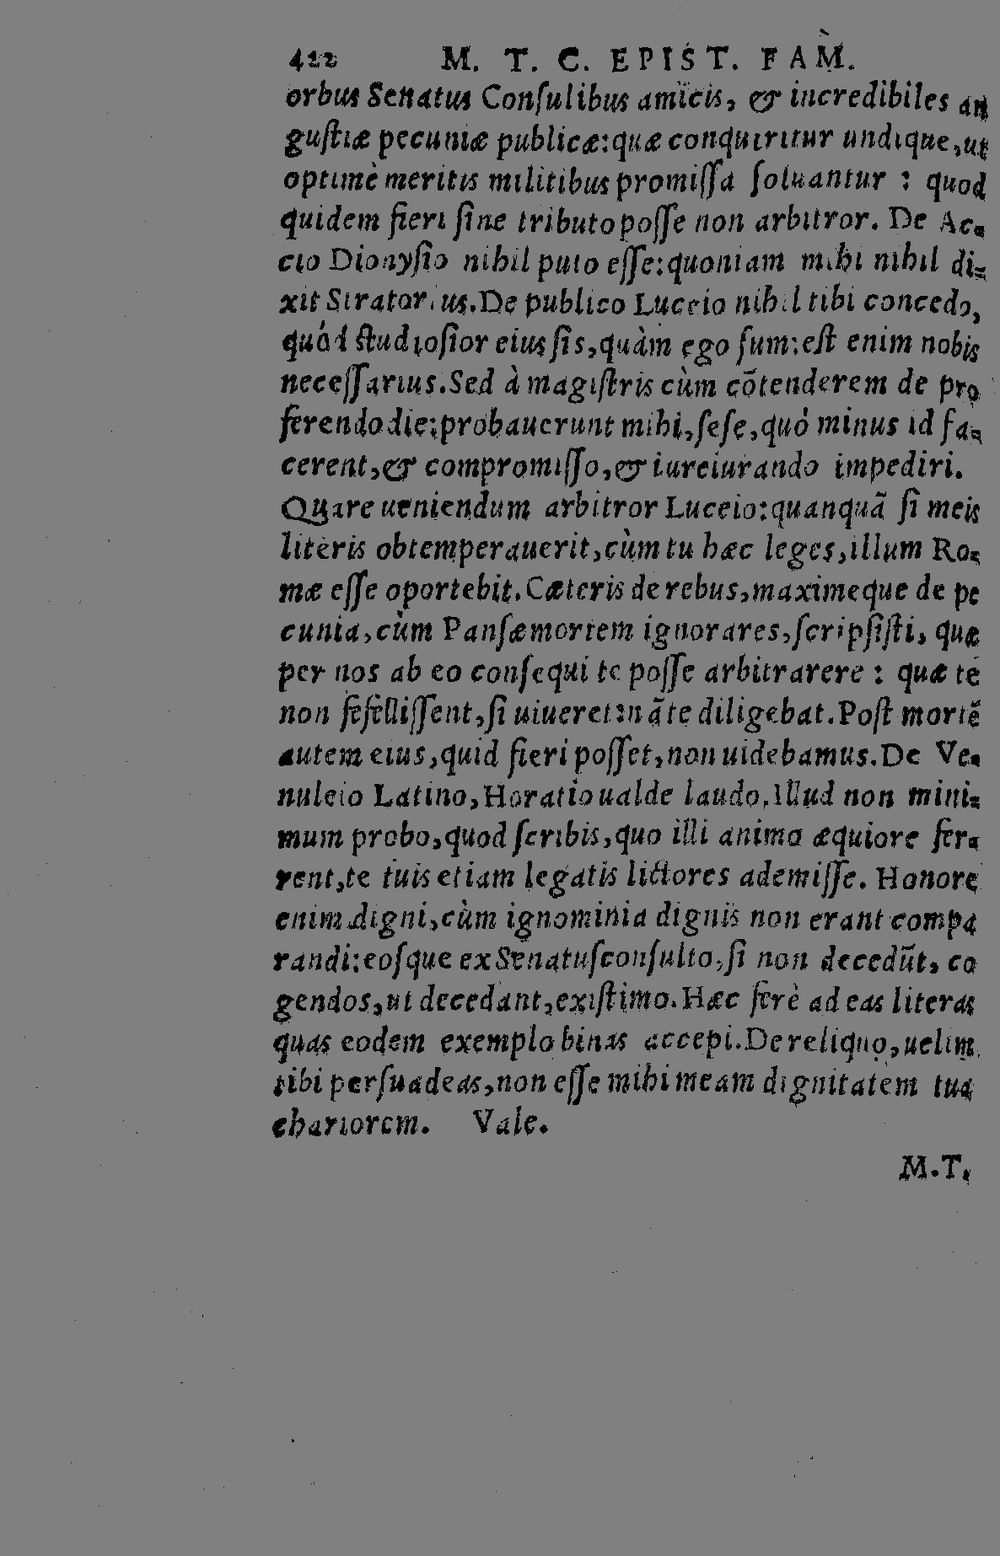 422 M. T. C. EPIST. FAM.
orbus Senatus Consulibus amicis, & incredibiles an
gustiæ pecuniæ publicæ: quæ conquiritur undique, ut
optimè meritis militibus promissa soluantur : quod
quidem fieri sine tributo posse non arbitror. De Ac-
cio Dionysio nihil puto esse: quoniam mihi nihil di-
xit Stratorius. De publico Lucceio nihil tibi concedo,
quòd studiosior eius sis, quàm ego sum: est enim nobis
necessarius. Sed à magistris cùm cōtenderem de pro
ferendo die: probauerunt mihi, sese, quò minus id fa-
cerent, & compromisso, & iureiurando impediri.
Quare ueniendum arbitror Luceio: quanquā si meis
literis obtemperauerit, cùm tu hæc leges, illum Ro-
mæ esse oportebit. Cæteris de rebus, maximeque de pe
cunia, cùm Pansæ mortem ignorares, scripsisti, quæ
per nos ab eo consequi te posse arbitrarere : quæ te
non fefellissent, si uiueret: nā te diligebat. Post mortē
autem eius, quid fieri posset, non uidebamus. De Ve-
nuleio Latino, Horatio ualde laudo. Illud non mini-
mum probo, quod scribis, quo illi animo æquiore fer-
rent, te tuis etiam legatis lictores ademisse. Honore
enim digni, cùm ignominia dignis non erant compa
randi: eosque ex Senatusconsulto, si non decedūt, co
gendos, ut decedant, existimo. Hæc ferè ad eas literas
quas eodem exemplo binas accepi. De reliquo, uelim
tibi persuadeas, non esse mihi meam dignitatem tua
chariorem. Vale.
M.T.